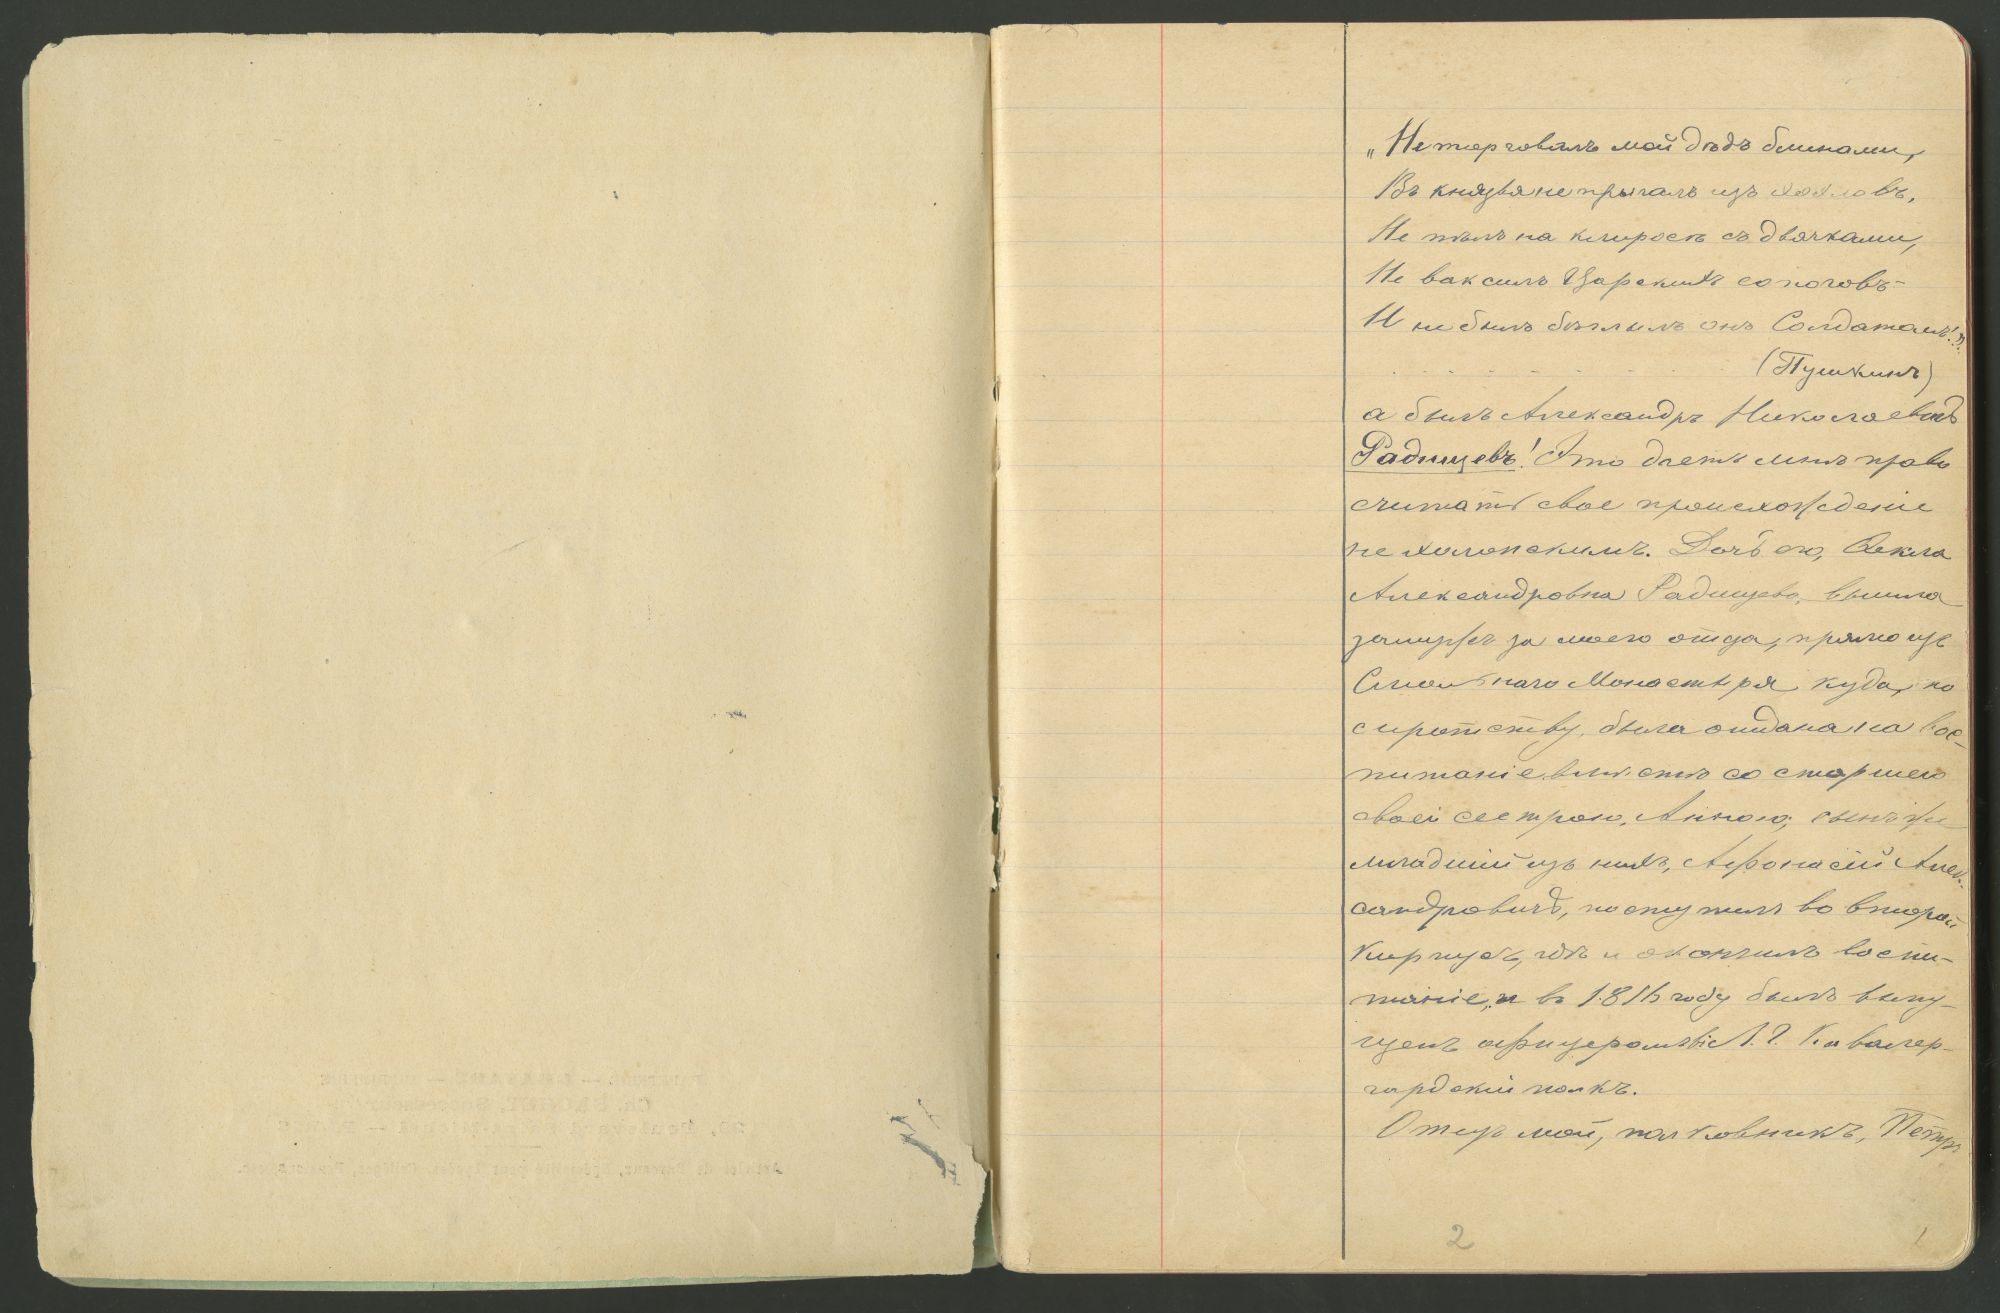 „Не торговалъ мой дѣдъ блинами,
Въ князья не прыгалъ изъ хохловъ,
Не пѣлъ на клиросѣ съ дьячками,
Не ваксилъ Царскихъ сапоговъ-
И не былъ бѣглымъ онъ Солдатомъ!"
(Пушкинъ)
а былъ Александръ Николаевичъ
Радищевъ! Это даетъ мнѣ право
считать свое происхожденіе
не холопскимъ. Дочь его, Ѳекла
Александровна Радищева, вышла
замужъ за моего отца, прямо изъ
Смольнаго Монастыря куда, по
сиротству, была отдана на вос-
питаніе вмѣстѣ со старшею
своей сестрою, Анною; сынъ же
младшій изъ нихъ, Афонасій Алек-
сандровичъ, поступилъ во второй
Корпусъ, гдѣ и окончилъ воспи-
таніе, и въ 1816 году былъ выпу-
щенъ офицеромъ въ Л. Г. Кавалер-
гардскій полкъ.
Отецъ мой, полковникъ, Петръ
2
1